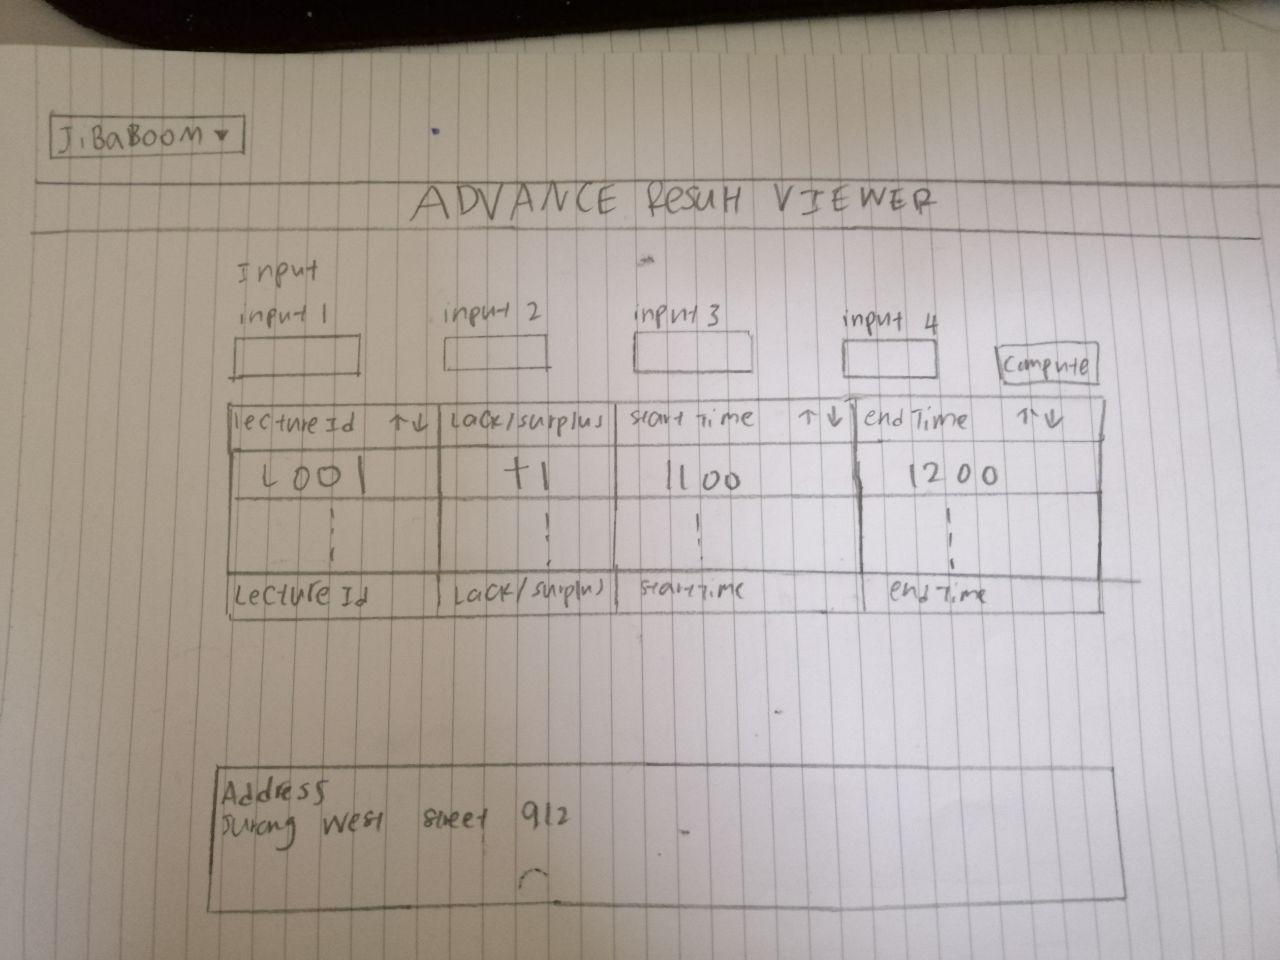 JiBaBOOM ▾
ADVANCE Result VIEWER
Input
input 1 input 2 input 3 input 4
Compute
lecture Id ↑↓ Lack/surplus start Time ↑↓ end Time ↑↓
L001 +1 1100 1200
Lecture Id Lack/surplus startTime end Time
Address
Jurong West street 912